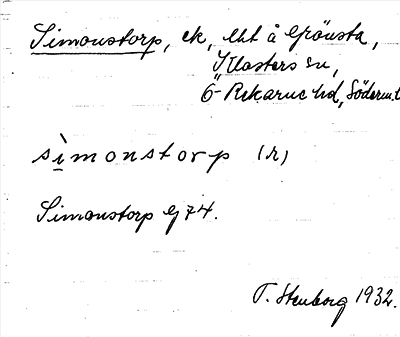 Simonstorp, ek, lht å Grönsta,
Klosters sn,
Ö-Rekarne hd, Söderm.
sìmonstorp (r)
Simonstorp Ej 74.
T. Stenborg 1932.